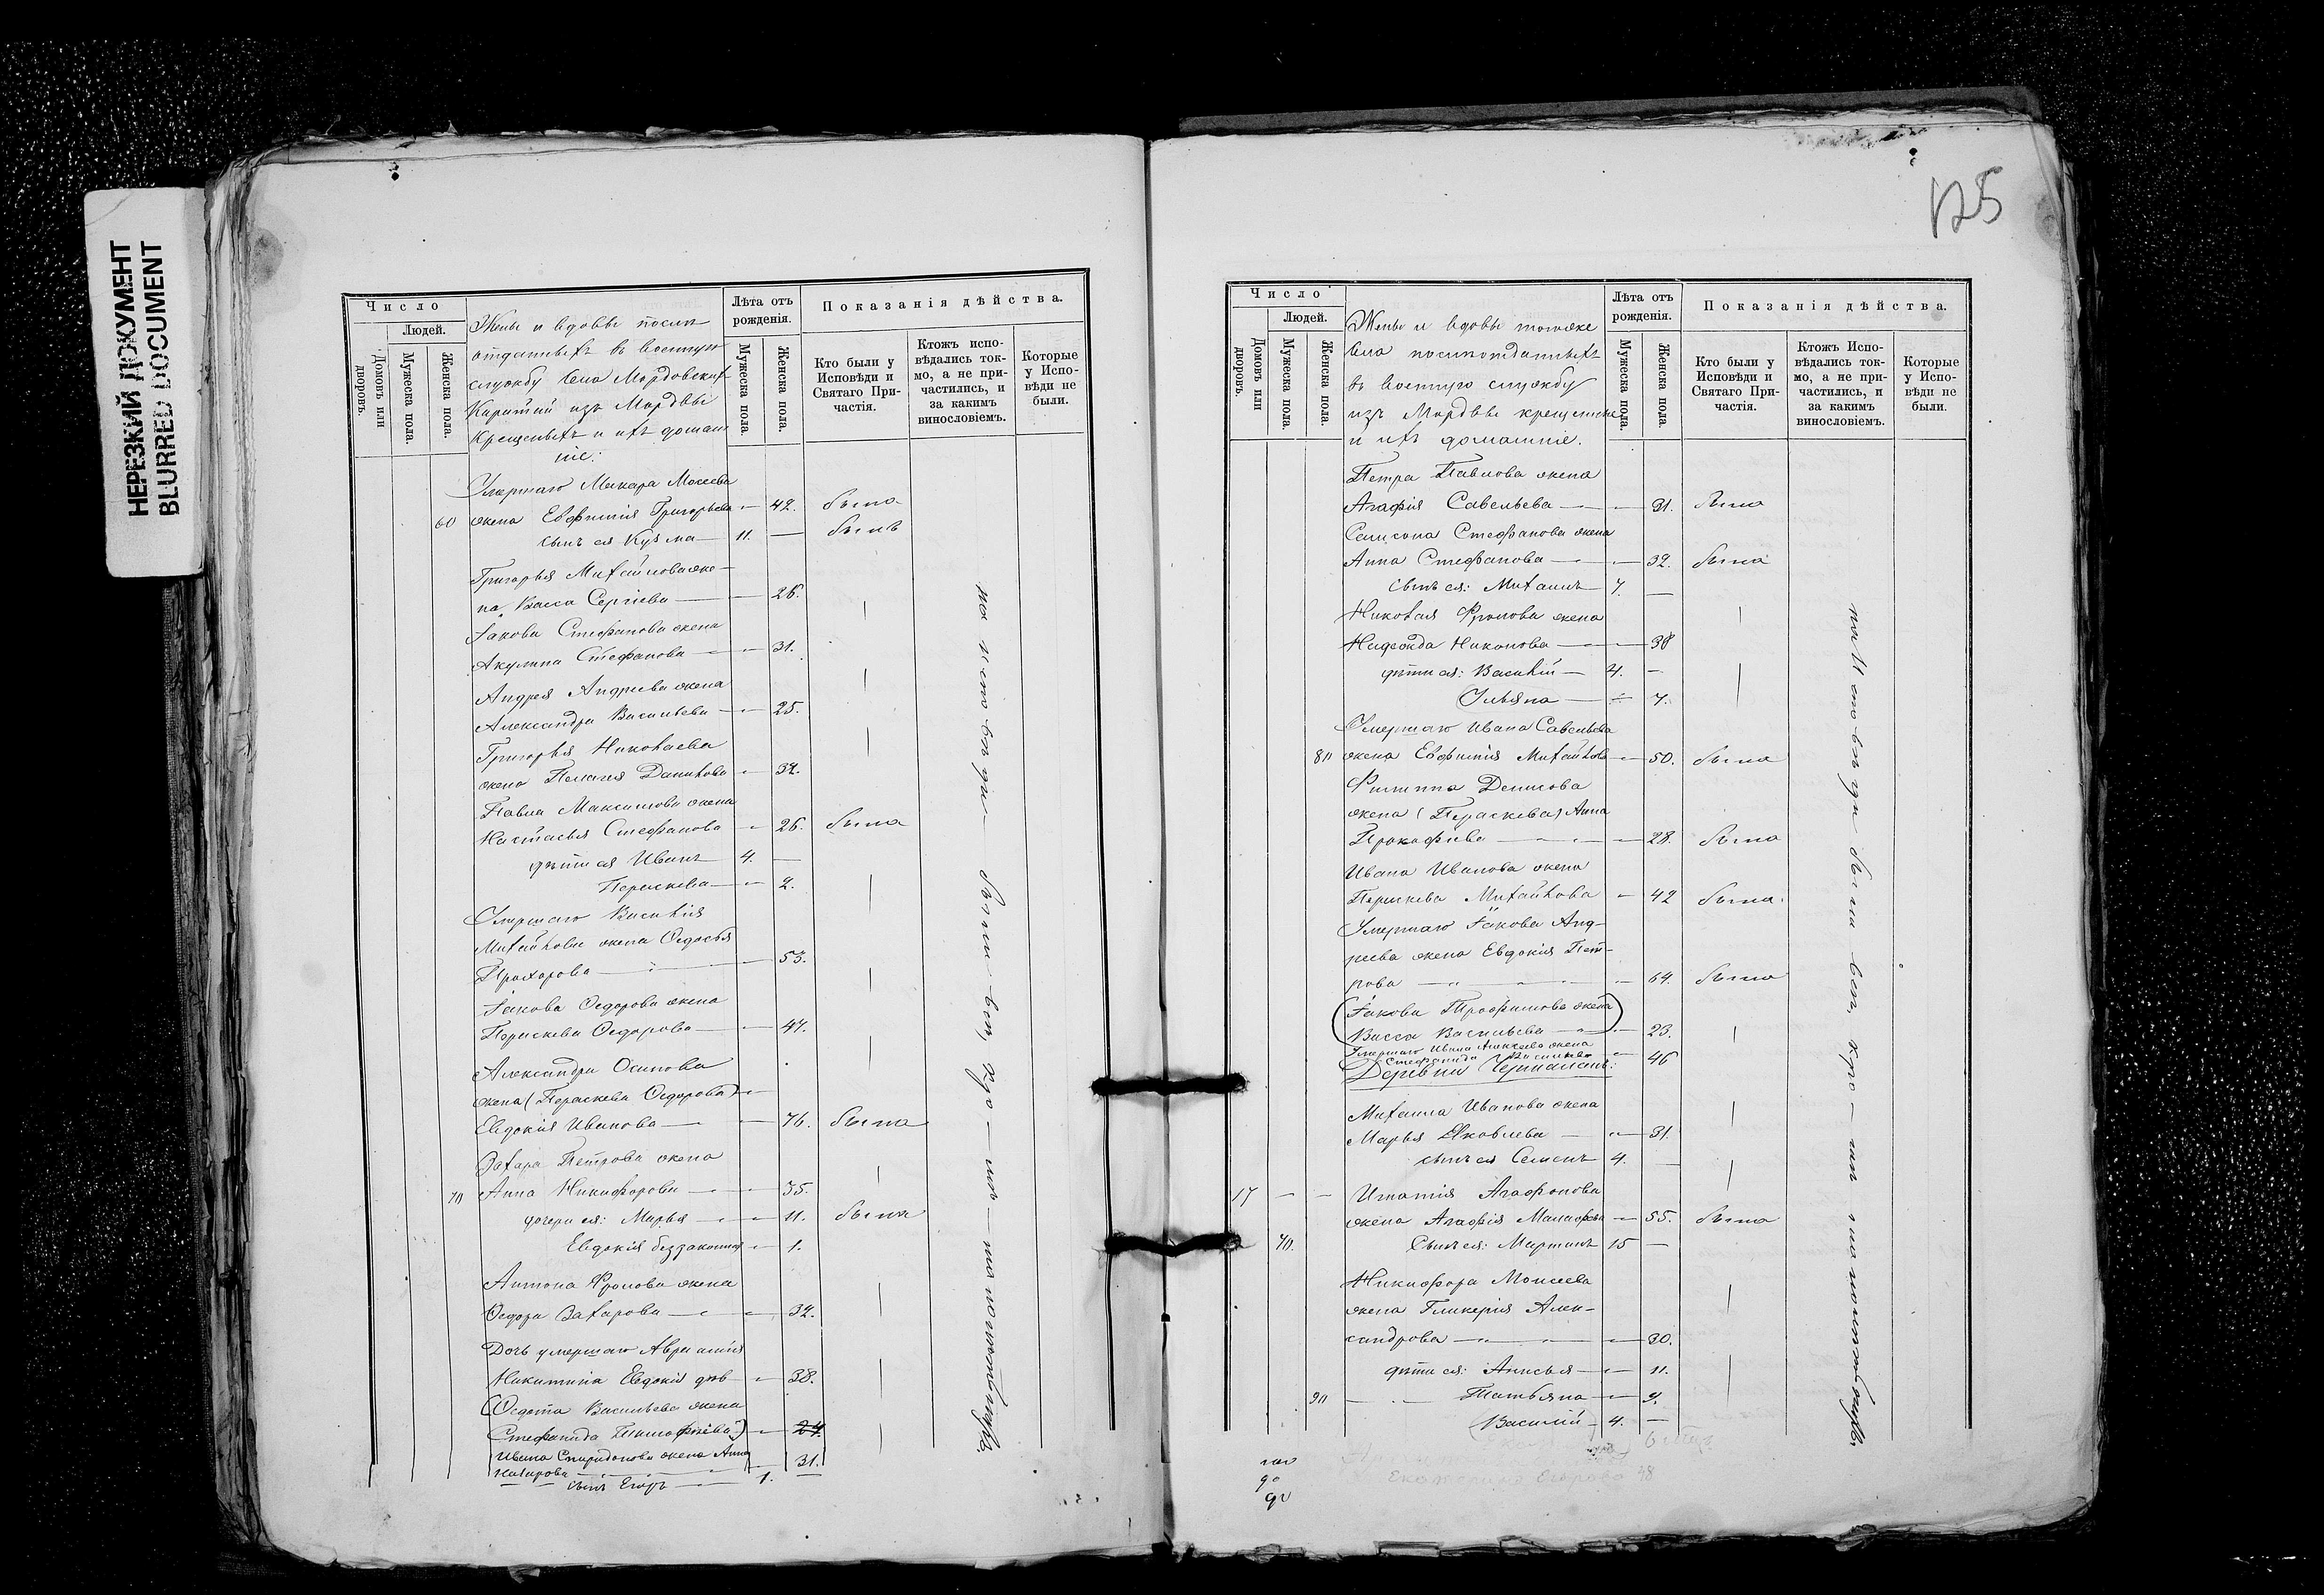 НЕРЕЗКИЙ ДОКУМЕНТ
BLURRED DOCUMENT
Число
Людей.
Домовъ или дворовъ.
Мужеска пола.
Женска пола.
Жены и вдовы
отданныхъ въ военную
службу села Мордовских
Каратай изъ Мордвы
Крещеныхъ и ихъ домаш
ніе:
Лѣта отъ рожденія.
Мужеска пола.
Женска пола.
Показанія дѣйства.
Кто были у Исповѣди и Святаго Причастія.
Ктожъ исповѣдались токмо, а не причастились, и за какимъ винословіемъ.
Которые у Исповѣди не были.
Умершаго Макара Моисеева
60 жена Евфимія Григорьева — 42. была
сынъ ея Кузма — 11. — былъ
Григорья Михайлова же-
на Васса Сергіева — 26.
Іакова Стефанова жена
Акулина Стефанова — 31.
Андрея Андреева жена
Александра Васильева — 25.
Григорья Николаева
жена Пелагея Данилова — 32.
Павла Максимова жена
Настасья Стефанова — 26. была
дѣти ея Иванъ 4. —
Параскева — 2.
Умершаго Василія
Михайлова жена Ѳедосья
Прохорова — 53.
Іакова Ѳедорова жена
Параскева Ѳедорова — 47.
Александра Осипова
жена (Параскева Ѳедорова) —
Евдокія Иванова — 76. была
Захара Петрова жена
70 Анна Никифорова — 35.
дочери ея: Марья — 11. была
Евдокія беззаконная — 1.
Антона Фролова жена
Ѳедора Захарова — 32.
Дочь умершаго Аврамія
Никитина Евдокія дѣв — 38.
(Ѳедота Васильева жена
Стефанида Тимофеева) — 24
Ивана Спиридонова жена Анна
Назарова — 31.
сынъ Егоръ — 1.
125
Число
Людей.
Домовъ или дворовъ.
Мужеска пола.
Женска пола.
Жены и вдовы тогоже
села
въ военную службу
изъ Мордвы крещеные
и ихъ домашніе.
Лѣта отъ рожденія.
Мужеска пола.
Женска пола.
Показанія дѣйства.
Кто были у Исповѣди и Святаго Причастія.
Ктожъ Исповѣдались токмо, а не причастились, и за какимъ винословіемъ.
Которые у Исповѣди не были.
Петра Павлова жена
Агафія Савельева — 31. была
Самсона Стефанова жена
Анна Стефанова — 32. была
сынъ ея: Михаилъ 7. —
Николая Фролова жена
Никонова — 38
дѣти ея: Василій — 4. —
Ульяна — 7.
Умершаго Ивана Савельева
80 жена Евфимія Михайлова — 50. была
Филиппа Денисова
жена (Параскева) Анна
Прокофьева — 28. была
Ивана Иванова жена
Параскева Михайлова — 42 была.
Умершаго Іакова Анд-
реева жена Евдокія Пет-
рова — 64. была
(Іакова Трофимова жена)
Васса Васильева — 23.
Умершаго Ивана Алексеева жена
Стефанида Васильева — 46
Деревни
Михаила Иванова жена
Марья Яковлева — 31.
сынъ ея Семенъ 4. —
17 — — Игнатія Агафонова
жена Агафія — 55. была
70. Сынъ ея: Мартинъ 15 —
Никифора Моисеева
жена Гликерія Алек-
сандрова — 30.
дѣти ея: Анисья — 11.
90 — Татьяна — 9.
Василій — 4. —
Екатерина Егорова 48